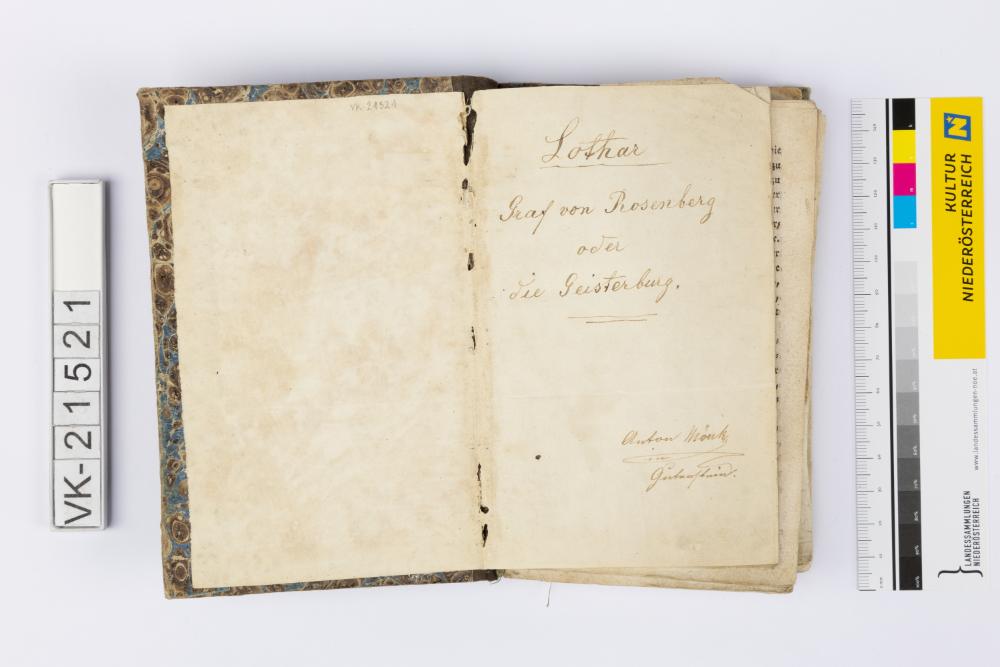 VK-21521
VK-21521
Lothar
Graf von Rosenberg
oder
die Geisterburg.
Anton
in
Gutenstein.
KULTUR
NIEDERÖSTERREICH
www.landessammlungen-noe.at
LANDESSAMMLUNGEN
NIEDERÖSTERREICH